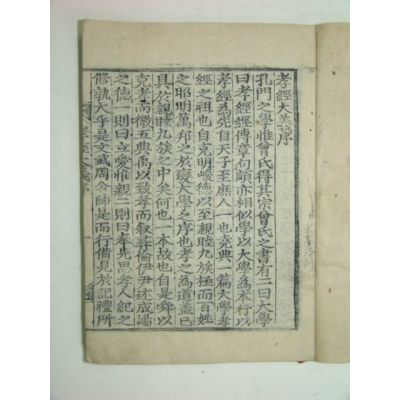 孝經大義序
孔門之學惟曾氏得其宗曾氏之書有二曰大學
曰孝經經傳章句頗亦相似學以大學為本行以
孝經為先自天子至庶人一也堯典一篇大學孝
經之祖也自克明峻德以至親睦九族極而百姓
之昭明萬邦之扵變大學之序也孝之為道蓋已
具扵親睦九族之中矣何也一本故也自是舜以
克孝而徽五典禹以致孝而叙彝倫伊尹述成湯
之德一則曰立愛惟親二則曰奉先思孝人紀之
修孰大乎是文武周公帥是而行備見扵記禮所